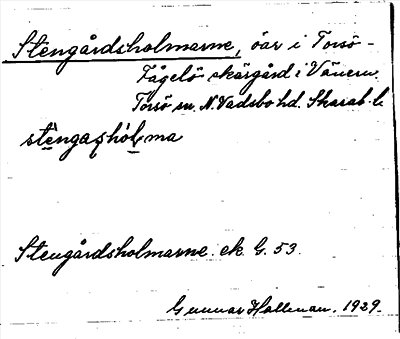 Stengårdsholmarne, öar i Torsö-
Fågelö skärgård i Vänern.
Torsö sn. N. Vadsbo hd. Skarab. l.
stengaṣhólma
Stengårdsholmarne. ek. G. 53.
Gunnar Hallman. 1929.